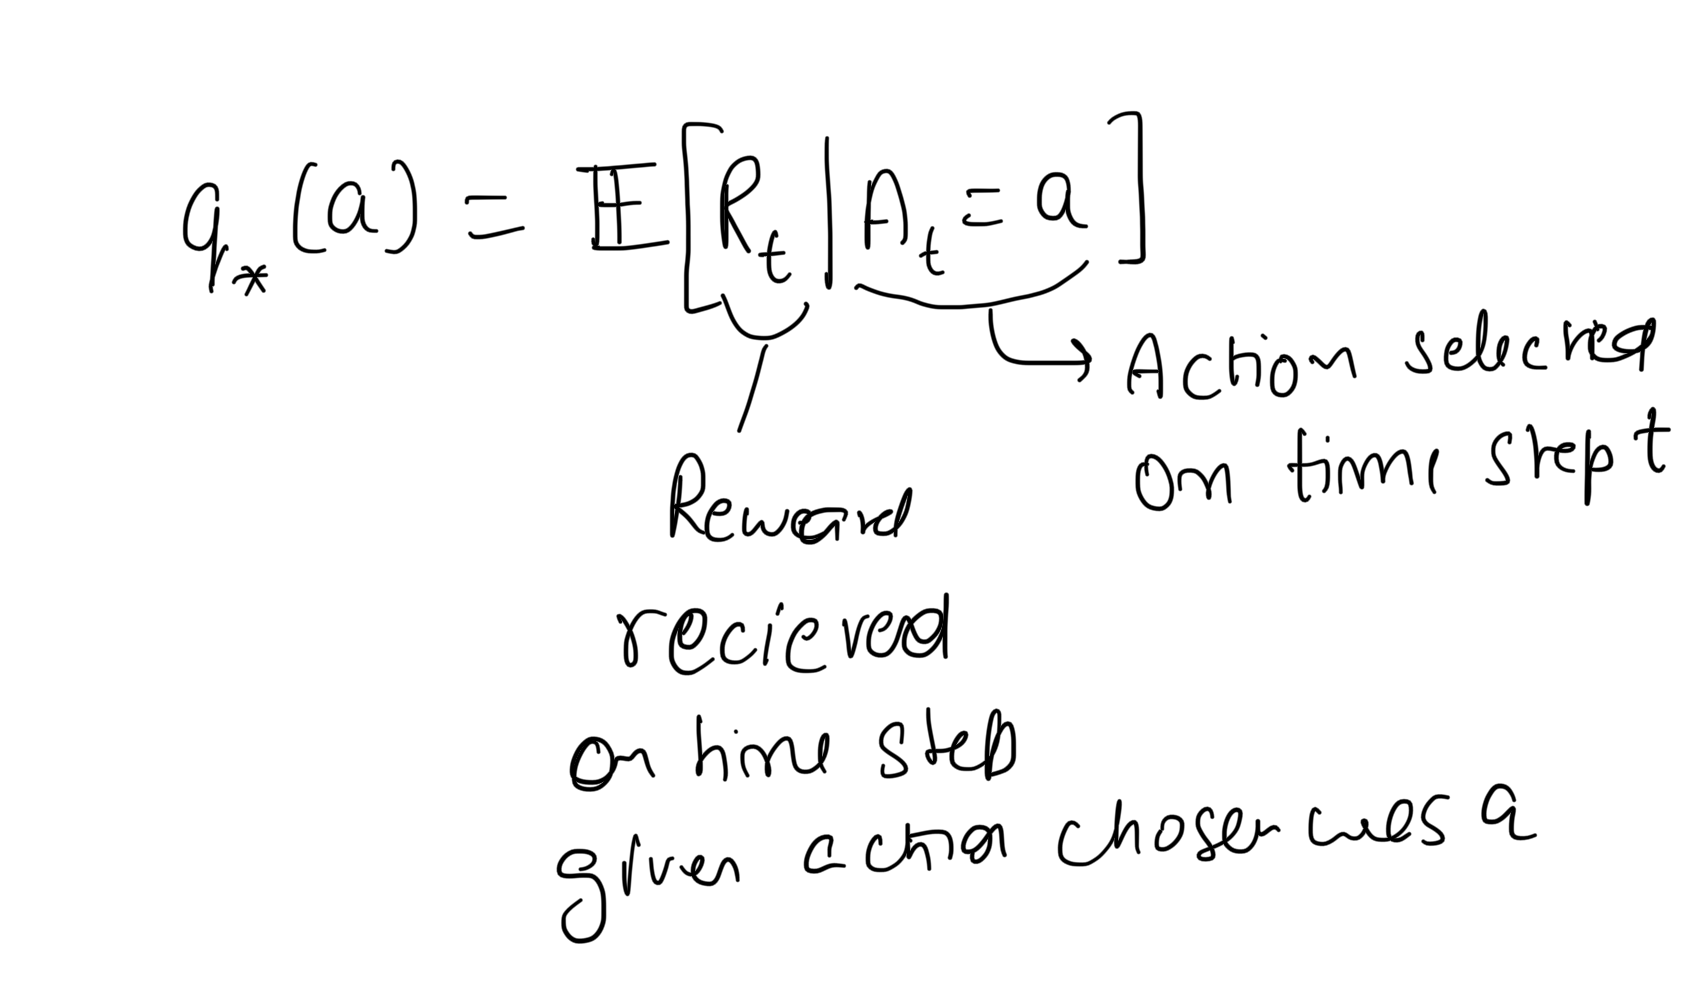 q_*(a) = 𝔼[R_t | A_t = a]
Action selected
on time step t
Reward
recieved
on time step
given action chosen was a